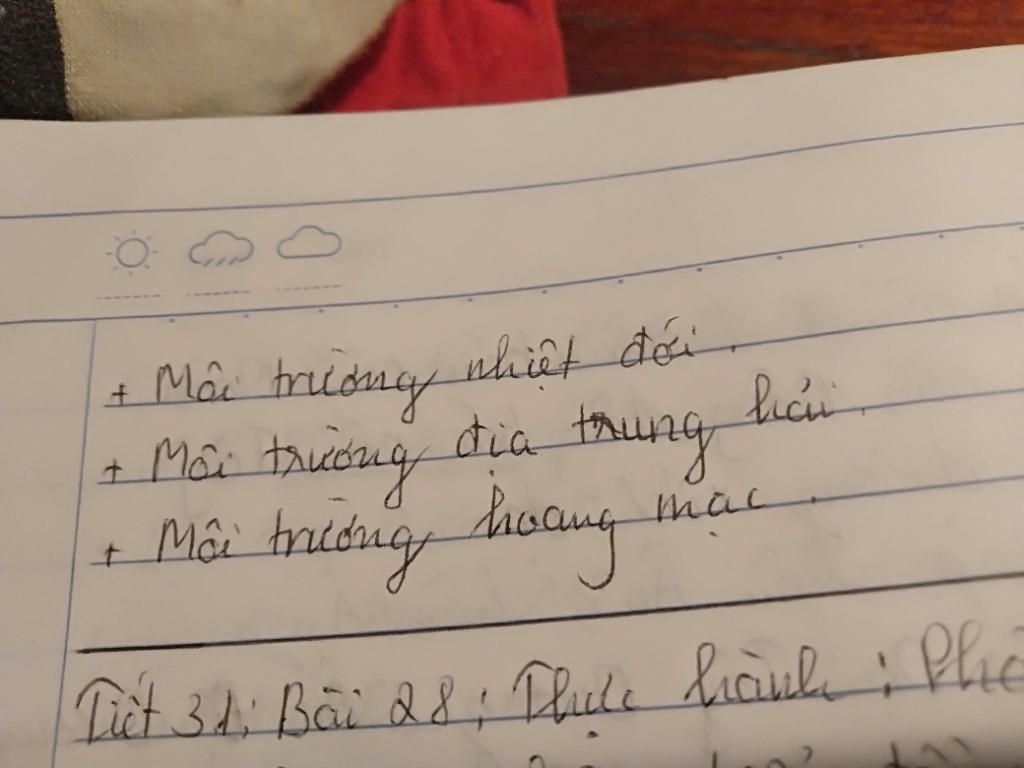 + Môi trường nhiệt đới.
+ Môi trường địa trung hải.
+ Môi trường hoang mạc.
Tiết 31: Bài 28: Thực hành: